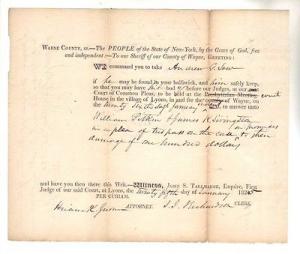 WAYNE COUNTY, ss.—The PEOPLE of the State of New-York, by the Grace of God, free
and independent :—To our Sheriff of our County of Wayne, GREETING :
WE command you to take Andrew
if he may be found in your bailiwick, and him safely keep,
so that you may have his body before our Judges, at our
Court of Common Pleas, to be held at the Presbyterian Meeting court
House in the village of Lyons, in and for the county of Wayne, on
to answer unto
William Pitkin & James K. Livingston
in a plea of trespass on the case to their
damage of one hundred dollars
and have you then there this Writ.—Witness, JOHN S. TALLMADGE, Esquire, First
Judge of our said Court, at Lyons, the twenty fifth day of January 182
PER CURIAM.
ATTORNEY. Richardson CLERK.